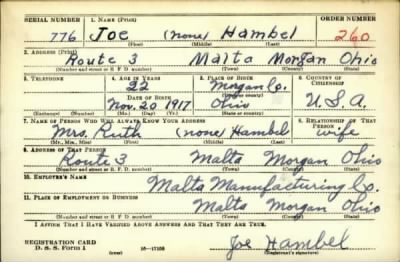 SERIAL NUMBER 1. NAME (Print) ORDER NUMBER
776 Joe (none) Hambel 260
(First) (Middle) (Last)
2. ADDRESS (Print)
Route 3 Malta Morgan Ohio
(Number and street or R. F. D. number) (Town) (County) (State)
3. TELEPHONE 4. AGE IN YEARS 5. PLACE OF BIRTH 6. COUNTRY OF CITIZENSHIP
22 Morgan Co.
DATE OF BIRTH (Town or county)
Nov. 20 1917 Ohio U.S.A.
(Exchange) (Number) (Mo.) (Day) (Yr.) (State or country)
7. NAME OF PERSON WHO WILL ALWAYS KNOW YOUR ADDRESS 8. RELATIONSHIP OF THAT PERSON
Mrs. Ruth (none) Hambel wife
(Mr., Mrs., Miss) (First) (Middle) (Last)
9. ADDRESS OF THAT PERSON
Route 3 Malta Morgan Ohio
(Number and street or R. F. D. number) (Town) (County) (State)
10. EMPLOYER'S NAME
Malta Manufacturing Co.
11. PLACE OF EMPLOYMENT OR BUSINESS
Malta Morgan Ohio
(Number and street or R. F. D. number) (Town) (County) (State)
I AFFIRM THAT I HAVE VERIFIED ABOVE ANSWERS AND THAT THEY ARE TRUE.
REGISTRATION CARD
D. S. S. Form 1 (over) 16-17105 Joe Hambel
(Registrant's signature)